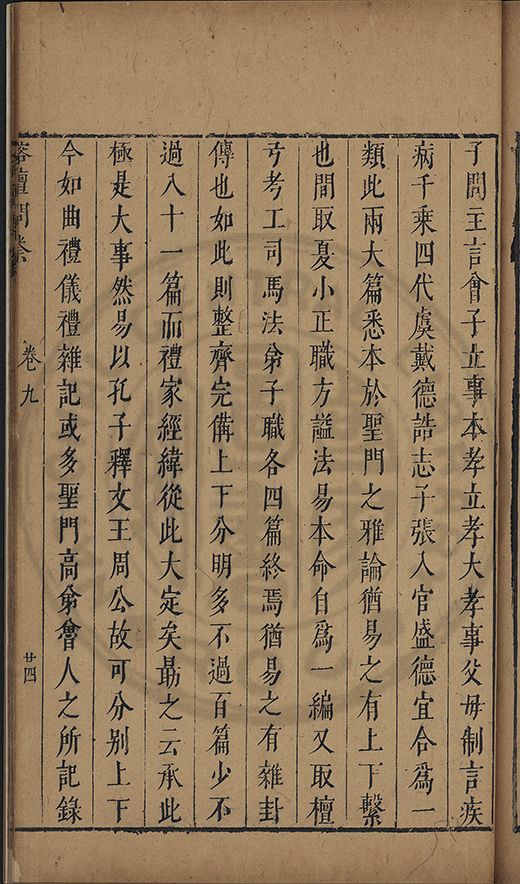 子問主言曾子立事本孝立孝大孝事父母制言疾
病千乘四代虞戴德誥志子張入官盛德宜合爲一
類此兩大篇悉本於聖門之雅論猶易之有上下繫
也間取夏小正職方謚法易本命自爲一編又取檀
弓考工司馬法弟子職各四篇終焉猶易之有雜卦
傳也如此則整齊完備上下分明多不過百篇少不
過八十一篇而禮家經緯從此大定矣勗之云承此
極是大事然易以孔子釋文王周公故可分别上下
今如曲禮儀禮雜記或多聖門高弟曾人之所記錄
榕壇問業
卷九
廿四